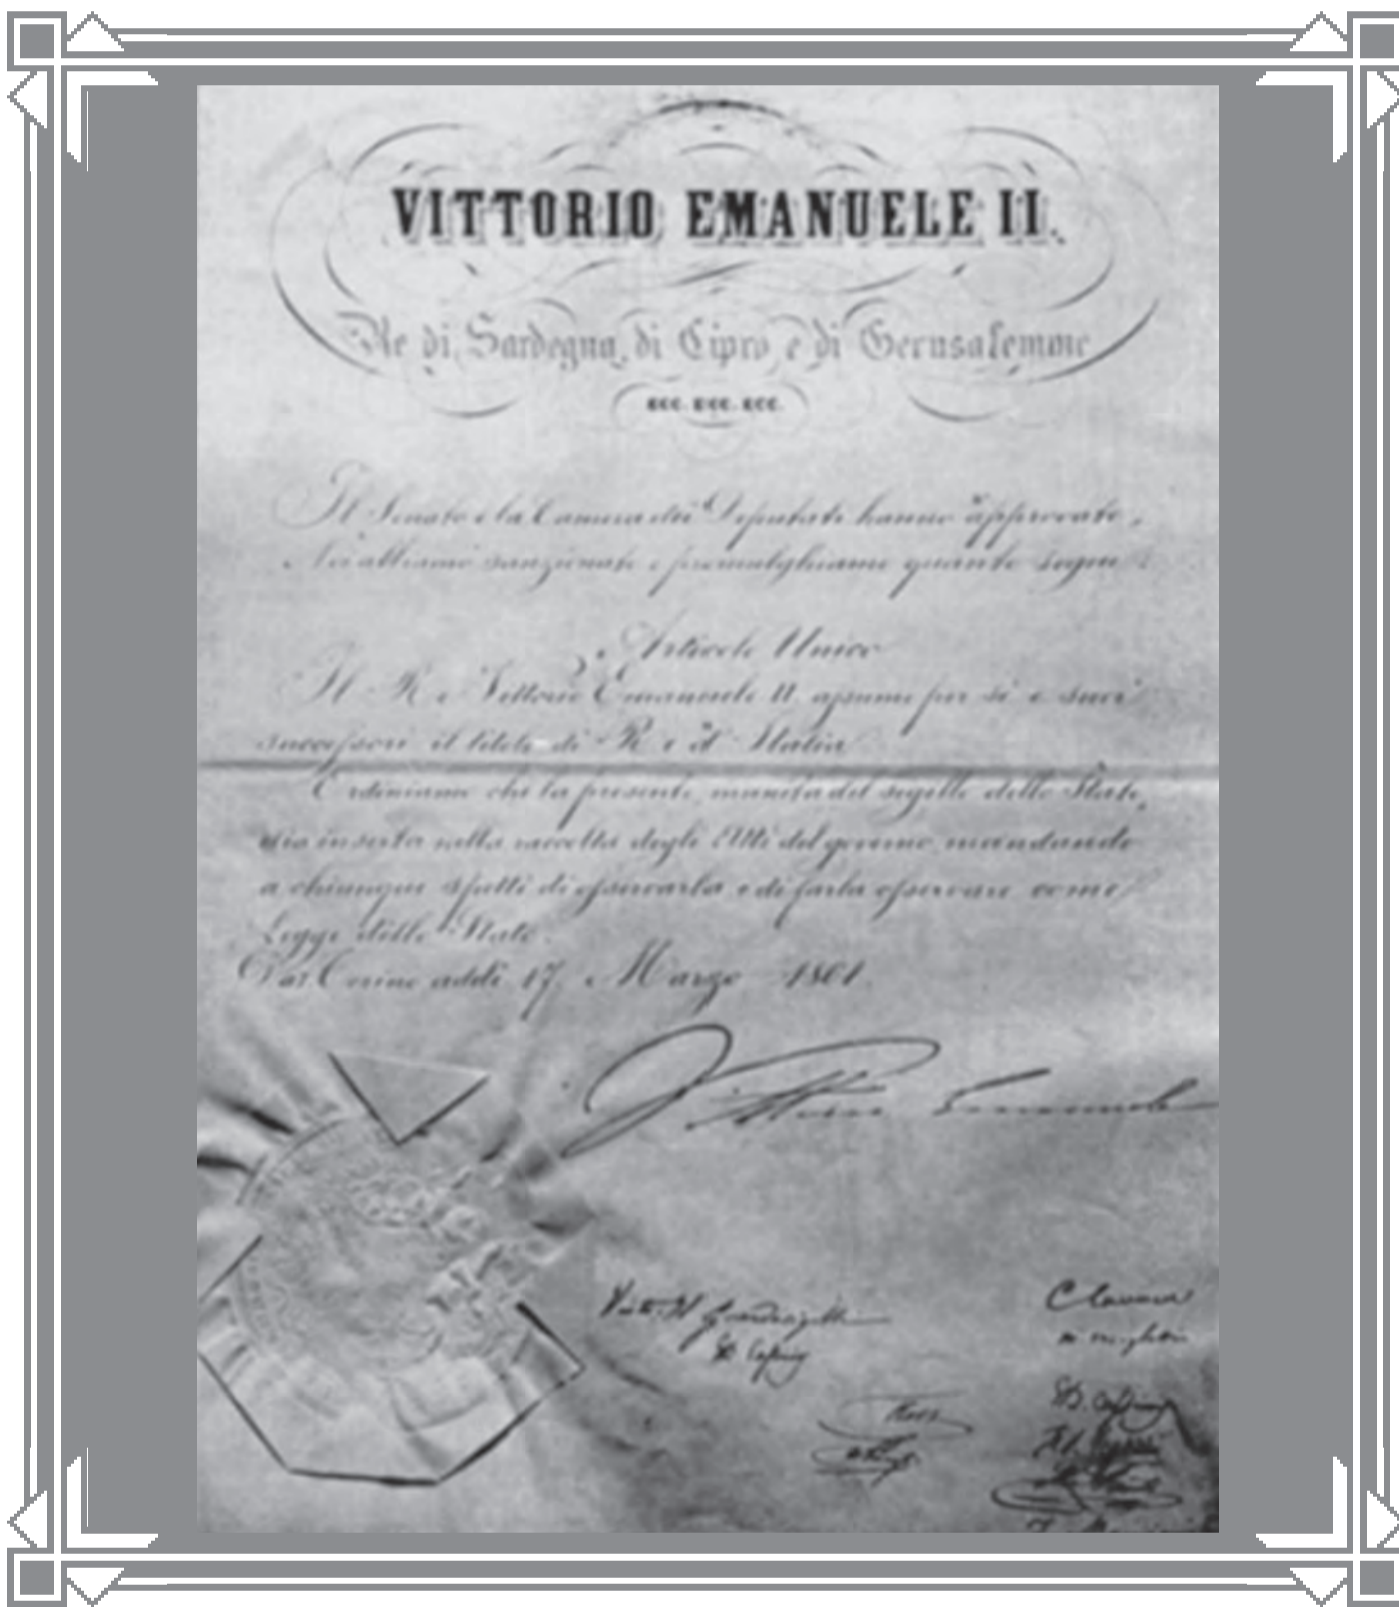 VITTORIO EMANUELE II.
Re di Sardegna, di Cipro e di Gerusalemme
ECC. ECC. ECC.
Il Senato e la Camera dei Deputati hanno approvato,
Noi abbiamo sanzionato e promulghiamo quanto segue:
Articolo Unico
Il Re Vittorio Emanuele II assume per sè e suoi
successori il titolo di Re d'Italia
Ordiniamo che la presente, munita del sigillo dello Stato,
sia inserta nella raccolta degli Atti del governo mandando
a chiunque spetti di osservarla e di farla osservare come
legge dello Stato.
Dat. Torino addì 17. Marzo 1861.
Vittorio Emanuele
C Cavour